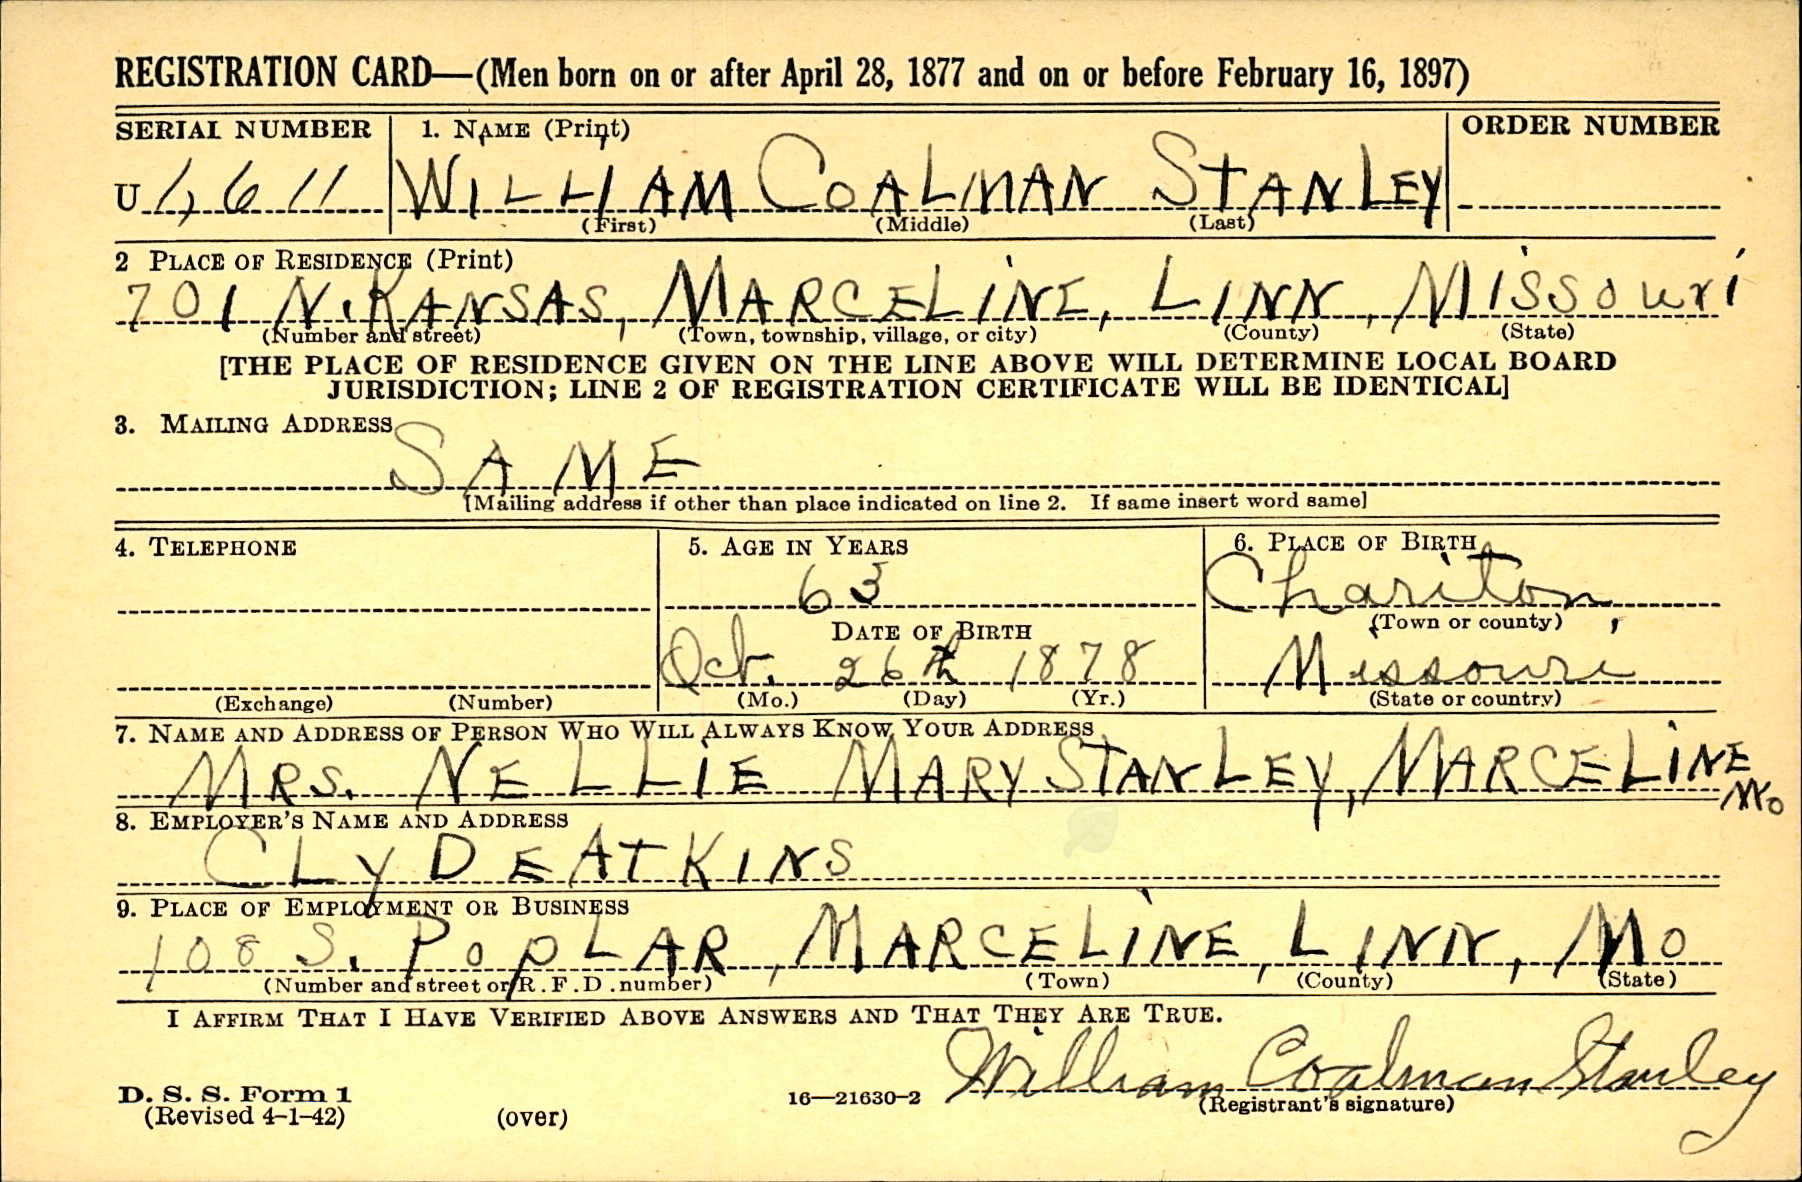 REGISTRATION CARD—(Men born on or after April 28, 1877 and on or before February 16, 1897)
SERIAL NUMBER 1. NAME (Print) ORDER NUMBER
U 1,611 WILLIAM COALMAN STANLEY
(First) (Middle) (Last)
2 PLACE OF RESIDENCE (Print)
701 N. KANSAS, MARCELINE, LINN, MISSOURI
(Number and street) (Town, township, village, or city) (County) (State)
[THE PLACE OF RESIDENCE GIVEN ON THE LINE ABOVE WILL DETERMINE LOCAL BOARD
JURISDICTION; LINE 2 OF REGISTRATION CERTIFICATE WILL BE IDENTICAL]
3. MAILING ADDRESS
SAME
[Mailing address if other than place indicated on line 2. If same insert word same]
4. TELEPHONE 5. AGE IN YEARS 6. PLACE OF BIRTH
63 Chariton,
DATE OF BIRTH (Town or county)
Oct. 26th 1878 Missouri
(Exchange) (Number) (Mo.) (Day) (Yr.) (State or country)
7. NAME AND ADDRESS OF PERSON WHO WILL ALWAYS KNOW YOUR ADDRESS
MRS. NELLIE MARY STANLEY, MARCELINE
MO
8. EMPLOYER'S NAME AND ADDRESS
CLYDE ATKINS
9. PLACE OF EMPLOYMENT OR BUSINESS
108 S. POPLAR, MARCELINE, LINN, MO
(Number and street or R.F.D. number) (Town) (County) (State)
I AFFIRM THAT I HAVE VERIFIED ABOVE ANSWERS AND THAT THEY ARE TRUE.
William Coalman Stanley
D. S. S. Form 1 16—21630-2 (Registrant's signature)
(Revised 4-1-42) (over)